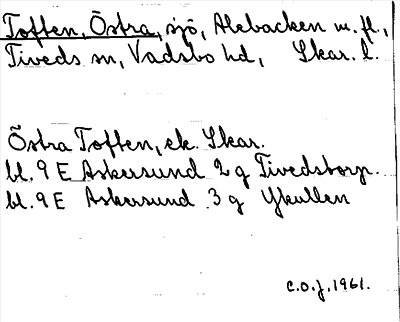 Toften, Östra, sjö, Alebacken m. fl.,
Tiveds sn, Vadsbo hd, Skar. l.
Östra Toften, ek. Skar.
bl. 9 E Askersund 2 g Tivedstorp.
bl. 9 E Askersund 3 g Ykullen
C.O.J. 1961.